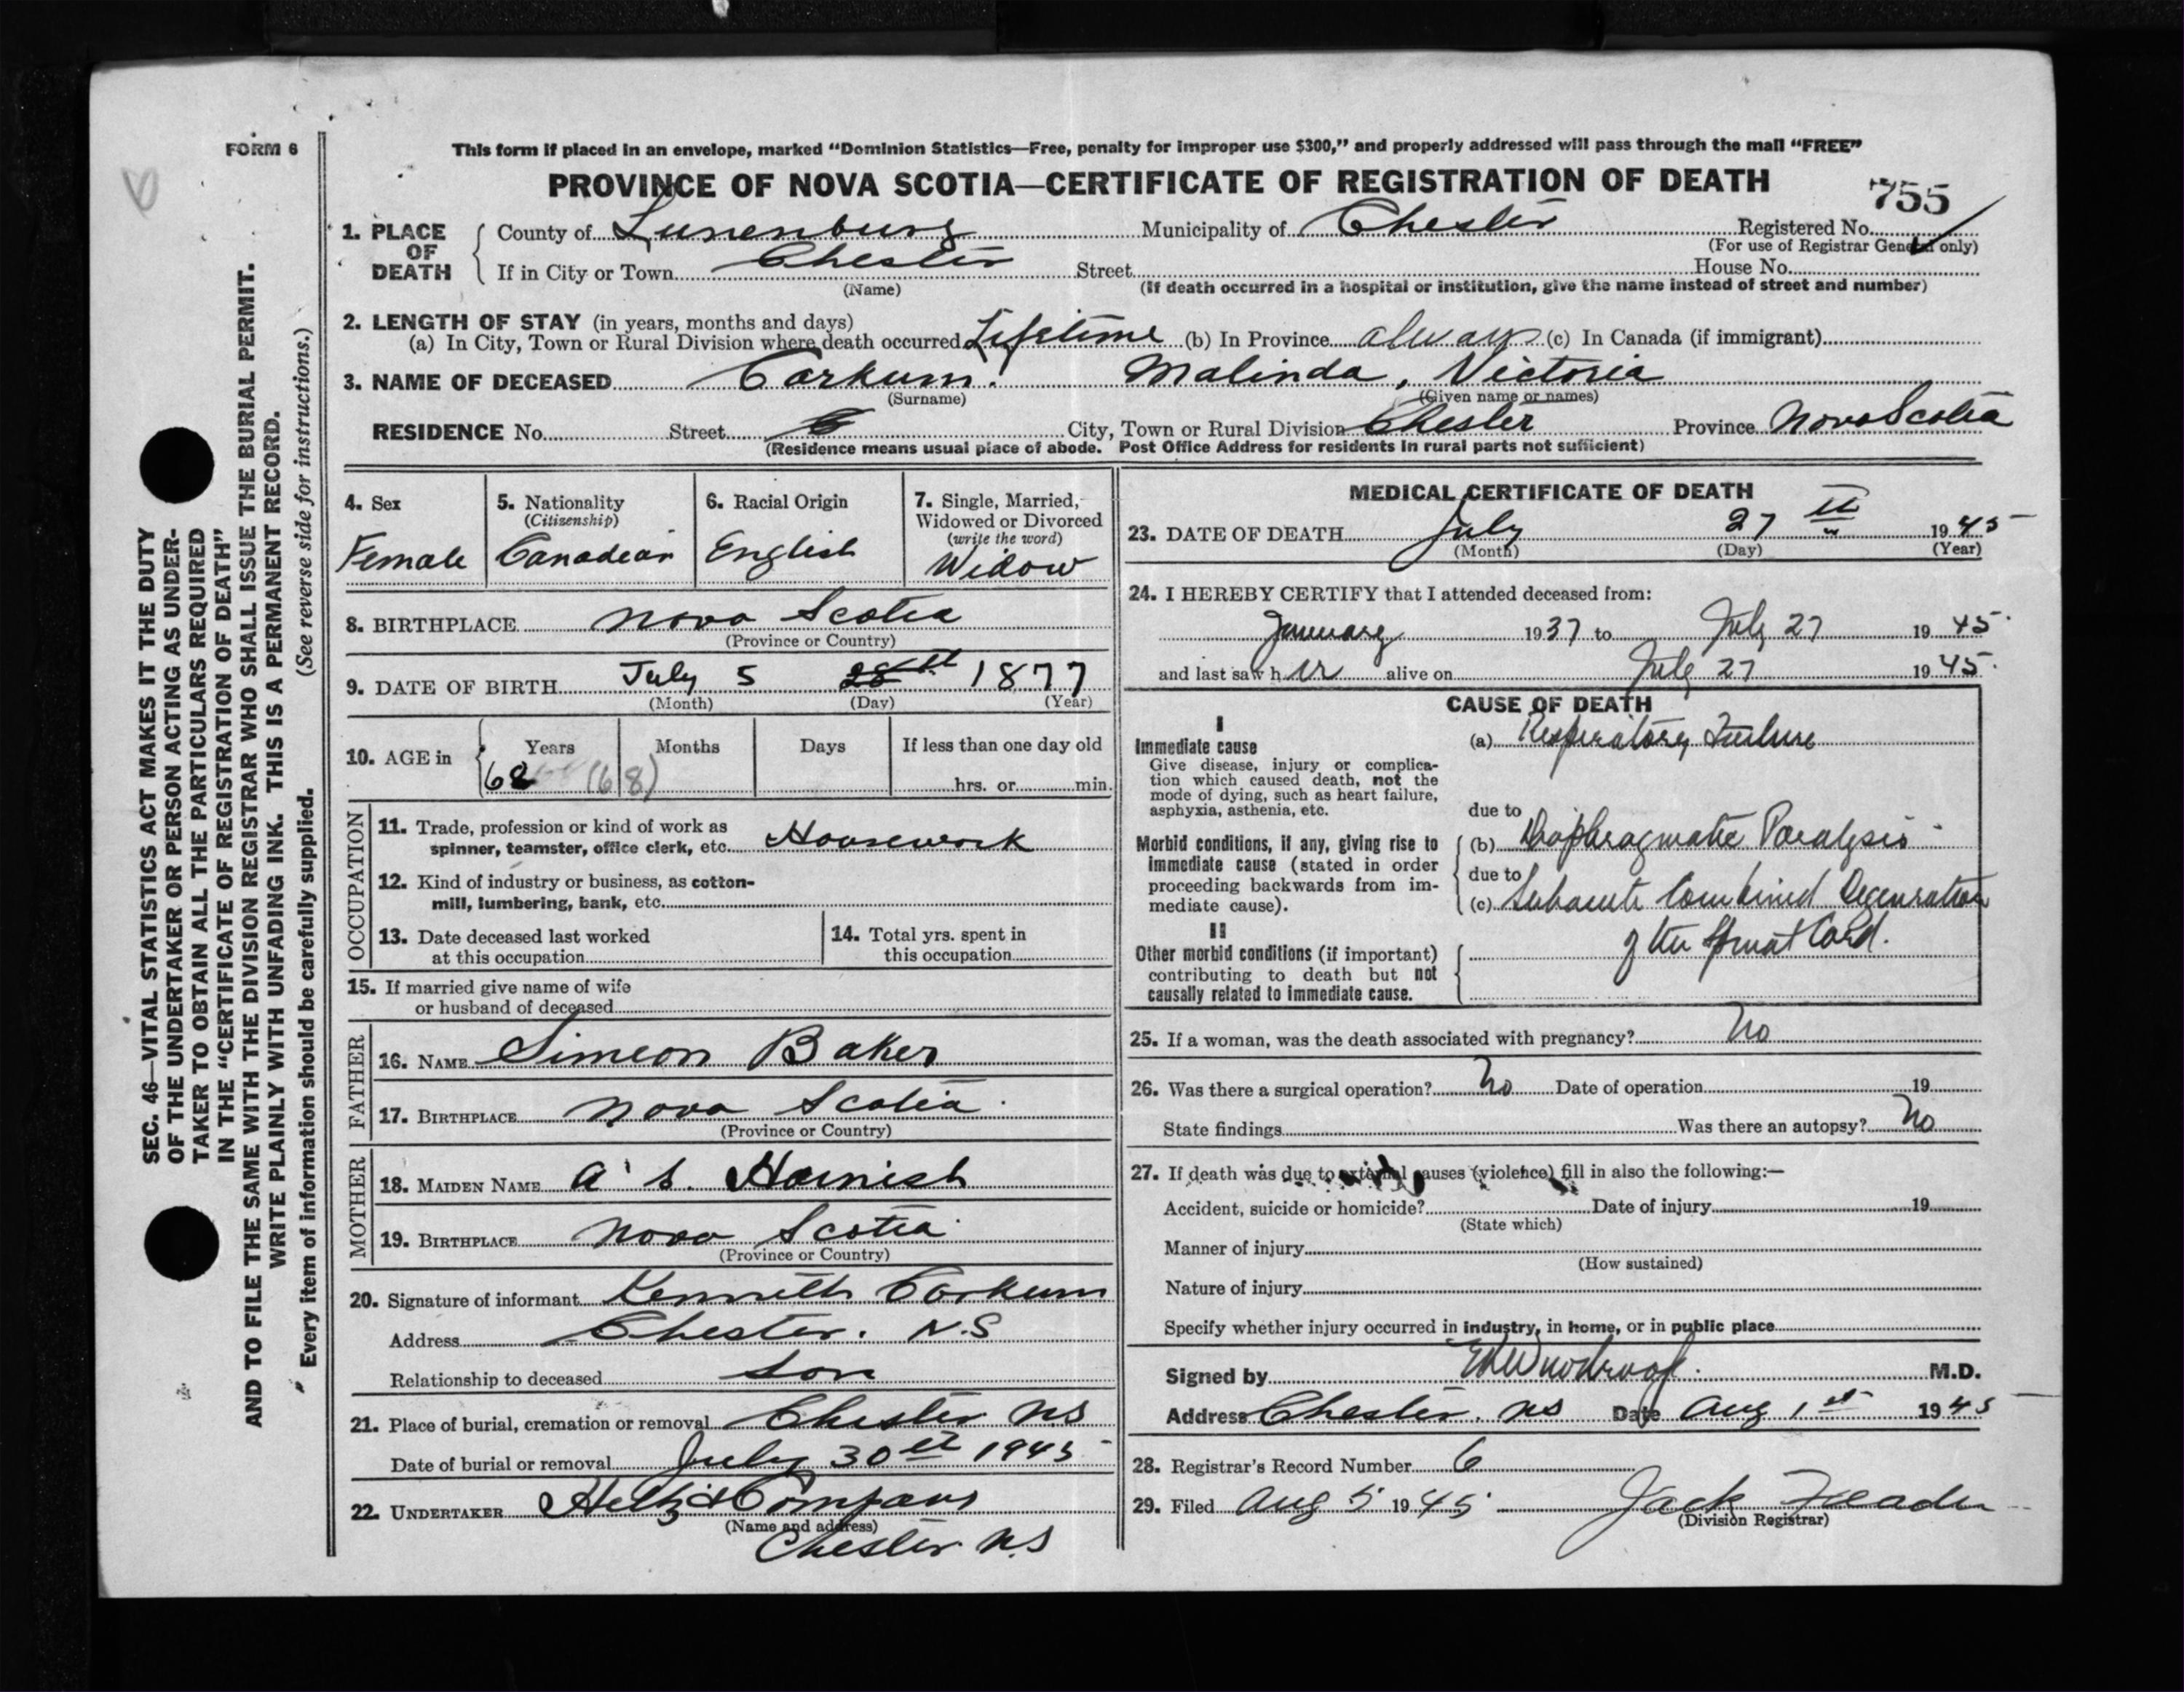 FORM 6
This form if placed in an envelope, marked "Dominion Statistics—Free, penalty for improper use $300," and properly addressed will pass through the mail "FREE"
PROVINCE OF NOVA SCOTIA—CERTIFICATE OF REGISTRATION OF DEATH
755
1. PLACE OF DEATH
County of Lunenburg Municipality of Chester Registered No.
(For use of Registrar General only)
If in City or Town Chester Street House No.
(Name) (If death occurred in a hospital or institution, give the name instead of street and number)
2. LENGTH OF STAY (in years, months and days)
(a) In City, Town or Rural Division where death occurred Lifetime (b) In Province always (c) In Canada (if immigrant)
3. NAME OF DECEASED Corkum. Malinda, Victoria
(Surname) (Given name or names)
RESIDENCE No. Street City, Town or Rural Division Chester Province Nova Scotia
(Residence means usual place of abode. Post Office Address for residents in rural parts not sufficient)
4. Sex
Female
5. Nationality
(Citizenship)
Canadian
6. Racial Origin
English
7. Single, Married,
Widowed or Divorced
(write the word)
Widow
8. BIRTHPLACE Nova Scotia
(Province or Country)
9. DATE OF BIRTH July 5 28th 1877
(Month) (Day) (Year)
10. AGE in Years Months Days If less than one day old
68 (68) hrs. or min.
OCCUPATION
11. Trade, profession or kind of work as
spinner, teamster, office clerk, etc. Housework
12. Kind of industry or business, as cotton-
mill, lumbering, bank, etc.
13. Date deceased last worked
at this occupation
14. Total yrs. spent in
this occupation
15. If married give name of wife
or husband of deceased
FATHER
16. NAME Simeon Baker
17. BIRTHPLACE Nova Scotia
(Province or Country)
MOTHER
18. MAIDEN NAME Harnish
19. BIRTHPLACE Nova Scotia
(Province or Country)
20. Signature of informant Kenneth Corkum
Address Chester. N.S
Relationship to deceased Son
21. Place of burial, cremation or removal Chester NS
Date of burial or removal July 30th 1945
22. UNDERTAKER & Company
(Name and address)
Chester N.S
MEDICAL CERTIFICATE OF DEATH
23. DATE OF DEATH July 27th 1945
(Month) (Day) (Year)
24. I HEREBY CERTIFY that I attended deceased from:
January 1937 to July 27 1945
and last saw her alive on July 27 1945.
CAUSE OF DEATH
I
Immediate cause
Give disease, injury or complica-
tion which caused death, not the
mode of dying, such as heart failure,
asphyxia, asthenia, etc.
(a) Respiratory Failure
due to
Morbid conditions, if any, giving rise to
immediate cause (stated in order
proceeding backwards from im-
mediate cause).
(b) Diaphragmatic Paralysis
due to
(c) Subacute Combined Degeneration
of the Spinal Cord.
II
Other morbid conditions (if important)
contributing to death but not
causally related to immediate cause.
25. If a woman, was the death associated with pregnancy? No
26. Was there a surgical operation? No Date of operation 19
State findings Was there an autopsy? No
27. If death was due to external causes (violence) fill in also the following:—
Accident, suicide or homicide? Date of injury 19
(State which)
Manner of injury
(How sustained)
Nature of injury
Specify whether injury occurred in industry, in home, or in public place
Signed by M.D.
Address Chester. NS Date Aug 1st 1945
28. Registrar's Record Number 6
29. Filed Aug 5 1945 Jack
(Division Registrar)
SEC. 46—VITAL STATISTICS ACT MAKES IT THE DUTY
OF THE UNDERTAKER OR PERSON ACTING AS UNDER-
TAKER TO OBTAIN ALL THE PARTICULARS REQUIRED
IN THE "CERTIFICATE OF REGISTRATION OF DEATH"
AND TO FILE THE SAME WITH THE DIVISION REGISTRAR WHO SHALL ISSUE THE BURIAL PERMIT.
WRITE PLAINLY WITH UNFADING INK. THIS IS A PERMANENT RECORD.
Every item of information should be carefully supplied. (See reverse side for instructions.)